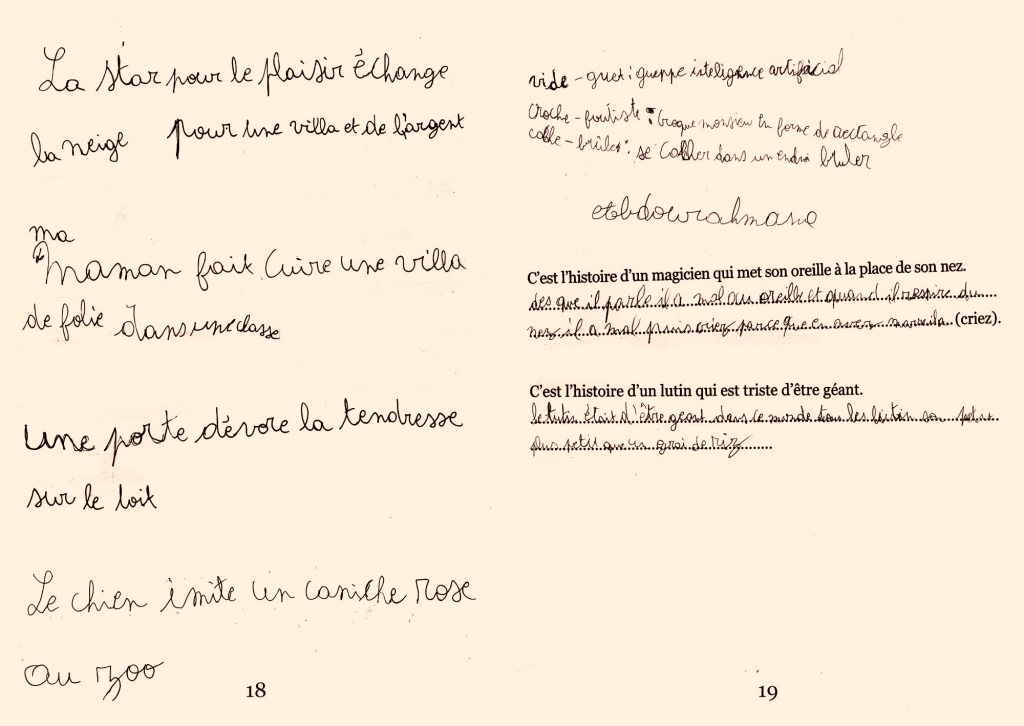 La star pour le plaisir échange
la neige pour une villa et de l'argent
ma
maman fait cuire une villa
de folie dans une classe
une porte dévore la tendresse
sur le toit
Le chien imite un caniche rose
au zoo
18
vide - guet : gueppe inteligence artificial
Croche - : croque monsieur en forme de rectangle
colle - brûler : se coller dans un endroi bruler
C'est l'histoire d'un magicien qui met son oreille à la place de son nez.
des que il parle il a mal au oreille et quand il respire du
nez il a mal puis criez parce que en (criez).
C'est l'histoire d'un lutin qui est triste d'être géant.
le lutin était d'être géant dans ce monde tous les lutin son
plus petit que un grai de riz
19